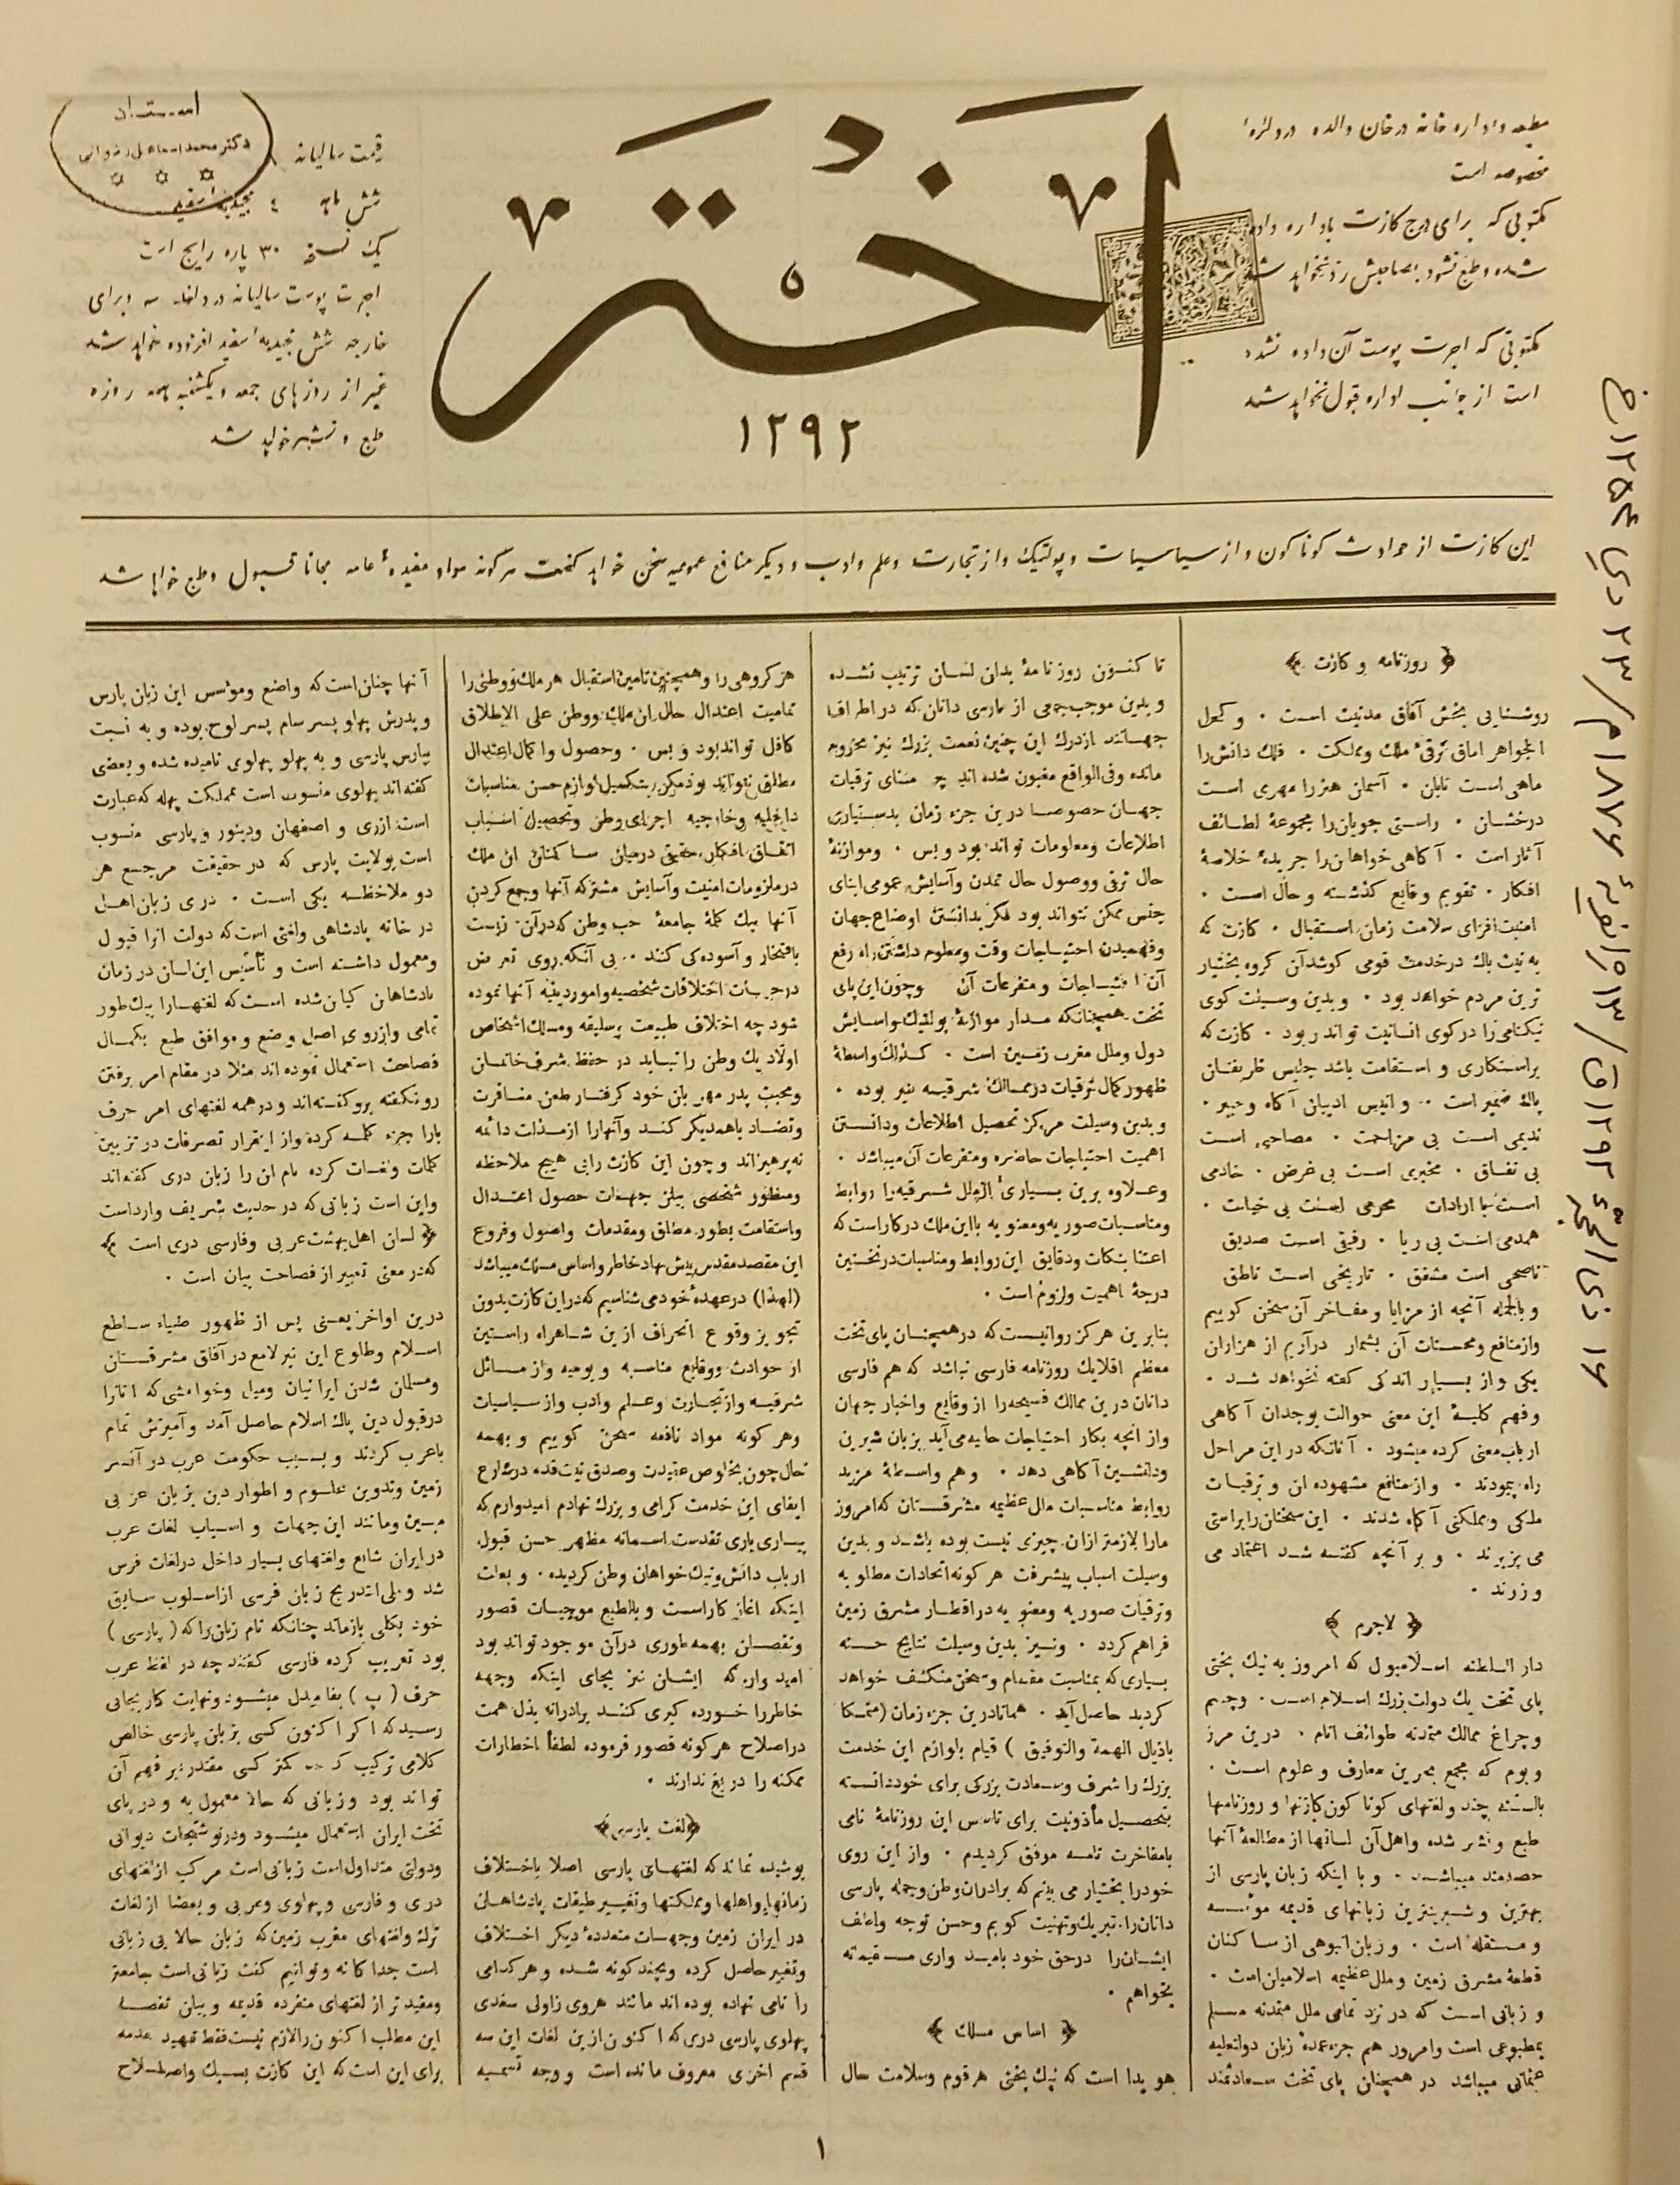 مطبعه و اداره خانه در خان والده در ولنزوا
مخصوصه است
مکتوبی که برای درج کازت باداره داده
شده و طبع نشود بصاحبش رد نخواهد شد
مکتوبی که اجرت پوست آن داده نشده
است از جانب اداره قبول نخواهد شد
اختر
١٢٩٢
استاد
دکتر محمد اسماعیل رضوانی
قیمت سالیانه
شش ماهه ٤ مجیدیهٔ سفید
یک نسخه ٣٠ پاره رایج است
اجرت پوست سالیانه در داخله سه و برای
خارجه شش مجیدیهٔ سفید افزوده خواهد شد
غیر از روزهای جمعه و یکشنبه همه روزه
طبع و نشر خواهد شد
این کازت از حوادث کوناکون و از سیاسیات و پولتیک و از تجارت و علم و ادب و دیکر منافع عمومیه سخن خواهد کفت هر کونه مواد مفیدهٔ عامه مجانا قبول و طبع خواهد شد
١٦ ذی الحجهٔ ١٢٩٢ق/١٣ ژانویهٔ ١٨٧٦م/٢٣ دی ١٢٥٤خ
﴿ روزنامه و کازت ﴾
روشنایی بخش آفاق مدنیت است ٠ و کحل
الجواهر اماق ترقیٔ ملك و مملکت ٠ فلك دانش را
ماهی است تابان ٠ آسمان هنر را مهری است
درخشان ٠ راستی جویان را مجموعهٔ لطائف
آثار است ٠ آکاهی خواهان را جریدهٔ خلاصهٔ
افکار ٠ تقویم وقایع کذشته و حال است ٠
امنیت افزای سلامت زمان استقبال ٠ کازت که
به نیت پاك در خدمت قومی کوشد آن کروه بختیار
ترین مردم خواهد بود ٠ و بدین وسیلت کوی
نیکنامی را در کوی انسانیت تواند ربود ٠ کازت که
براستکاری و استقامت باشد جلیس ظریفان
پاك ضمیر است ٠ و انیس ادیبان آکاه و خبیر ٠
ندیمی است بی مزاحمت ٠ مصاحبی است
بی نفاق ٠ مخبری است بی غرض ٠ خادمی
است با ارادات محرمی است بی خیانت ٠
همدمی است بی ریا ٠ رفیقی است صدیق
ناصحی است مشفق ٠ تاریخی است ناطق
و بالجمله آنچه از مزایا و مفاخر آن سخن کوییم
و از منافع و محسنات آن بشمار درآریم از هزاران
یکی و از بسیار اندکی کفته نخواهد شد ٠
و فهم کلیهٔ این معنی حوالت بوجدان آکاهی
ارباب معنی کرده میشود ٠ آنانکه در این مراحل
راه پیمودند ٠ و از منافع مشهوده ان و ترقیات
ملکی و مملکتی آکاه شدند ٠ این سخنان را براستی
می پزیرند ٠ و بر آنچه کفته شد اعتماد می
ورزند ٠
﴿ لاجرم ﴾
دار السلطنه اسلامبول که امروز به نیك بختی
پای تخت یك دولت بزرك اسلام است ٠ و چشم
و چراغ ممالك متمدنه طوائف انام ٠ درین مرز
و بوم که مجمع بحرین معارف و علوم است ٠
بالسنه چند و لغتهای کونا کون کازتها و روزنامها
طبع و نشر شده و اهل آن لسانها از مطالعهٔ آنها
حصه مند میباشند ٠ و با اینکه زبان پارسی از
بهترین و شیرینترین زبانهای قدیمه مونسه
و مستقله است ٠ و زبان انبوهی از ساکنان
قطعهٔ مشرق زمین و ملل عظیمه اسلامیان است ٠
و زبانی است که در نزد تمامی ملل متمدنه مسلم
بمطبوعی است و امروز هم جزء عمدهٔ زبان دولتعلیه
عثمانی میباشد در همچنان پای تخت سعادتمند
تا کنون روزنامهٔ بدان لسان ترتیب نشده
و بدین موجب جمعی از پارسی دانان که در اطراف
جهانند از درك این چنین نعمت بزرك نیز محروم
مانده و فی الواقع مغبون شده اند چه منشای ترقیات
جهان خصوصا درین جزء زمان بدستیاری
اطلاعات و معلومات تواند بود و بس ٠ و موازنهٔ
حال ترقی و وصول حال تمدن و آسایش عمومی ابنای
جنس ممکن نتواند بود مکر بدانستن اوضاع جهان
و فهمیدن احتیاجات وقت و معلوم داشتن راه رفع
آن احتیاجات و متفرعات آن و چون این پای
تخت همچنانکه مدار موازنهٔ پولتیك و اسایش
دول و ملل مغرب زمین است ٠ کذلك واسطهٔ
ظهور کمال ترقیات در ممالك شرقیه نیز بوده ٠
و بدین وسیلت مرکز تحصیل اطلاعات و دانستن
اهمیت احتیاجات حاضره و متفرعات آن میباشد ٠
و علاوه برین بسیاری از ملل شرقیه را روابط
و مناسبات صوریه و معنویه با این ملك در کار است که
اعتنا بنکات و دقایق این روابط و مناسبات در نخستین
درجهٔ اهمیت و لزوم است ٠
بنابرین هرکز روا نیست که در همچنان پای تخت
معظم اقلا یك روزنامه فارسی نباشد که هم فارسی
دانان درین ممالك فسیحه را از وقایع و اخبار جهان
و از انچه بکار احتیاجات حالیه می آید بزبان شیرین
و دلنشین آکاهی دهد ٠ و هم واسطهٔ مزید
روابط مناسبات ملل عظیمه مشرقستان که امروز
مارا لازمتر ازان چیزی نیست بوده باشد و بدین
وسیلت اسباب پیشرفت هر کونه اتحادات مطلوبه
و ترقیات صوریه و معنویه در اقطار مشرق زمین
فراهم کردد ٠ و نیز بدین وسیلت نتایج حسنه
بسیاری که بمناسبت مقام و سخن منکشف خواهد
کردید حاصل آید ٠ همانا درین جزء زمان (متمسکا
باذیال الهمة والتوفیق) قیام بلوازم این خدمت
بزرك را شرف و سعادت بزرکی برای خود دانسته
بتحصیل مأذونیت برای تاسیس این روزنامهٔ نامی
بامفاخرت تامه موفق کردیدم ٠ و از این روی
خود را بختیار می بینم که برادران وطن و جمله پارسی
دانان را تبریك و تهنیت کویم و حسن توجه و لطف
ایشان را در حق خود بامید واری مستقیمانه
بخواهم ٠
﴿ اساس مسلك ﴾
هویدا است که نیك بختی هر قوم و سلامت حال
هر کروهی را و همچنین تامین استقبال هر ملك و وطنی را
تمامیت اعتدال حال ان ملك و وطن علی الاطلاق
کافل تواند بود و بس ٠ و حصول و اکمال اعتدال
مطلق نتواند بود مکر بتکمیل لوازم حسن مناسبات
داخلیه و خارجیه اجرای وطن و تحصیل اسباب
اتفاق افکار حقیقی درمیان ساکنان ان ملك
در ملزومات امنیت و آسایش مشترکه آنها و جمع کردن
آنها بیك کلمهٔ جامعهٔ حب وطن که در آن زیست
بافتخار و آسوده کی کنند ٠ بی آنکه روی تعرض
در جزئیات اختلافات شخصیه و امور دینیه آنها نموده
شود چه اختلاف طبیعت و سلیقه و مسلك اشخاص
اولاد یك وطن را نباید در حفظ شرف خاندان
و محبت پدر مهربان خود کرفتار طعن منافرت
و تضاد با همدیکر کند و آنها را از ملذات دائمه
نه پرهیزاند و چون این کازت را بی هیچ ملاحظه
و منظور شخصی بیلن جهات حصول اعتدال
و استقامت بطور مطلق و مقدمات و اصول و فروع
این مقصد مقدس پیش نهاد خاطر و اساس مسلك میباشد
(لهذا) در عهدهٔ خود می شناسیم که در ان کازت بدون
تجویز وقوع انحراف ازین شاهراه راستین
از حوادث و وقایع مناسبه و یومیه و از مسائل
شرقیه و از تجارت و علم و ادب و از سیاسیات
و هر کونه مواد نافعه سخن کوییم و بهمه
حال چون بخلوص عقیدت و صدق نیت قدم در شارع
ایفای این خدمت کرامی و بزرك نهادم امیدوارم که
بیاری باری تقدست اسمائه مظهر حسن قبول
ارباب دانش و نیك خواهان وطن کردیده ٠ و بعلت
اینکه اغاز کار است و بالطبع موجبات قصور
و نقصان بهمه طوری در آن موجود تواند بود
امید وارم که ایشان نیز بجای اینکه وجهه
خاطر را خورده کیری کنند برادرانه بذل همت
در اصلاح هر کونه قصور فرموده لطفاً اخطارات
ممکنه را دریغ ندارند ٠
﴿ لغت پارسی ﴾
پوشیده نماند که لغتهای پارسی اصلا باختلاف
زمانها و اهلها و مملکتها و تغییر طبقات پادشاهان
در ایران زمین و جهات متعددهٔ دیکر اختلاف
و تغیر حاصل کرده و بچند کونه شده و هر کدامی
را نامی نهاده بوده اند مانند هروی زاولی سغدی
پهلوی پارسی دری که اکنون ازین لغات این سه
قسم اخری معروف مانده است و وجه تسمیه
آنها چنان است که واضع و موسس این زبان پارس
و پدرش پهلو پسر سام پسر نوح بوده و به نسبت
بپارس پارسی و به پهلو پهلوی نامیده شده و بعضی
کفته اند پهلوی منسوب است بمملکت پهله که عبارت
است ازری و اصفهان و دینور و پارسی منسوب
است بولایت پارس که در حقیقت مرجع هر
دو ملاحظه یکی است ٠ دری زبان اهل
در خانه پادشاهی و لغتی است که دولت انرا قبول
و معمول داشته است و تأسیس این لسان در زمان
پادشاهان کیان شده است که لغتها را بیك طور
تمامی و از روی اصل وضع و موافق طبع بکمال
فصاحت استعمال نموده اند مثلا در مقام امر برفتن
رو نکفته برو کفته اند و در همه لغتهای امر حرف
با را جزء کلمه کرده و از اینقرار تصرفات در تزیین
کلمات و لغات کرده نام ان را زبان دری کفته اند
و این است زبانی که در حدیث شریف وارد است
﴿ لسان اهل بهشت عربی و فارسی دری است ﴾
که در معنی تعبیر از فصاحت بیان است ٠
درین اواخر یعنی پس از ظهور ضیاء ساطع
اسلام و طلوع این نیر لامع در آفاق مشرقستان
و مسلمان شدن ایرانیان و میل و خواهشی که انانرا
در قبول دین پاك اسلام حاصل آمد و آمیزش تمام
با عرب کردند و بسبب حکومت عرب در آنسر
زمین و تدوین علوم و اطوار دین بزبان عربی
مبین و مانند این جهات و اسباب لغات عرب
در ایران شایع و لغتهای بسیار داخل در لغات فرس
شد و علی التدریج زبان فرسی از اسلوب سابق
خود بکلی بازماند چنانکه نام زبان را که (پارسی)
بود تعریب کرده فارسی کفتند چه در لفظ عرب
حرف (پ) بفا مبدل میشود و نهایت کار بجایی
رسید که اکر اکنون کسی بزبان پارسی خالص
کلامی ترکیب کند کمتر کسی مقتدر بر فهم آن
تواند بود و زبانی که حالا معمول به و در پای
تخت ایران استعمال میشود و در نوشتجات دیوانی
و دولتی متداول است زبانی است مرکب از لغتهای
دری و فارسی و پهلوی و عربی و بعضا از لغات
ترك و لغتهای مغرب زمین که زبان حالایی زبانی
است جداکانه و توانیم کفت زبانی است جامعتر
و مفیدتر از لغتهای منفرده قدیمه و بیان تفصیل
این مطالب اکنون را لازم نیست فقط تمهید مقدمه
برای این است که این کازت بسبك و اصطلاح
١